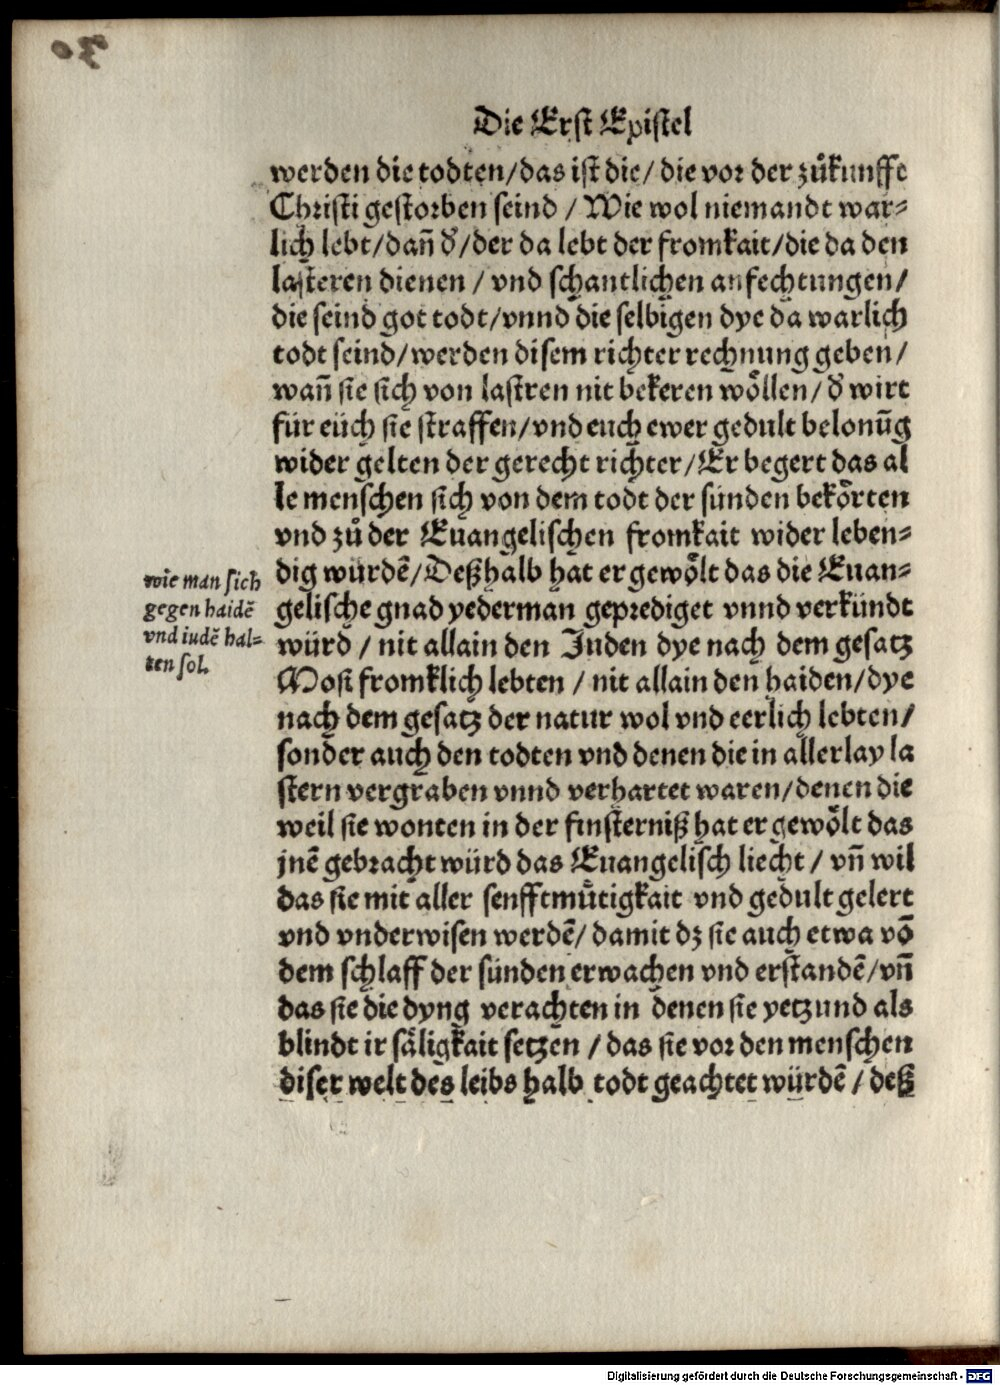 Die Erst Epistel
werden die todten/das ist die/ die vor der zůkunffe
Christi gestorben seind / Wie wol niemandt war⸗
lich lebt/dañ d̕/der da lebt der fromkait/die da den
lasteren dienen / vnd schantlichen anfechtungen/
die seind got todt/vnnd die selbigen dye da warlich
todt seind/werden disem richter rechnung geben/
wañ sie sich von lastren nit bekeren wöllen/d̕ wirt
für eüch sie straffen/vnd euch ewer gedult belonūg
wider gelten der gerecht richter/Er begert das al
le menschen sich von dem todt der sünden bekörten
vnd zů der Euangelischen fromkait wider leben⸗
dig würdē/Deßhalb hat er gewölt das die Euan⸗
gelische gnad yederman geprediget vnnd verkündt
würd / nit allain den Juden dye nach dem gesatz
Mosi fromklich lebten / nit allain den haiden/dye
nach dem gesatz der natur wol vnd eerlich lebten/
sonder auch den todten vnd denen die in allerlay la
stern vergraben vnnd verhartet waren/denen die
weil sie wonten in der finsterniß hat er gewölt das
jnē gebracht würd das Euangelisch liecht / vñ wil
das sie mit aller senfftmůtigkait vnd gedult gelert
vnd vnderwisen werdē/ damit dz sie auch etwa vō
dem schlaff der sünden erwachen vnd erstandē/vñ
das sie die dyng verachten in denen sie yetzund als
blindt ir säligkait setzen / das sie vor den menschen
diser welt des leibs halb todt geachtet würdē / deß
wie man sich
gegen haidē
vnd iudē hal⸗
ten sol.
30
Digitalisierung gefördert durch die Deutsche Forschungsgemeinschaft - DFG